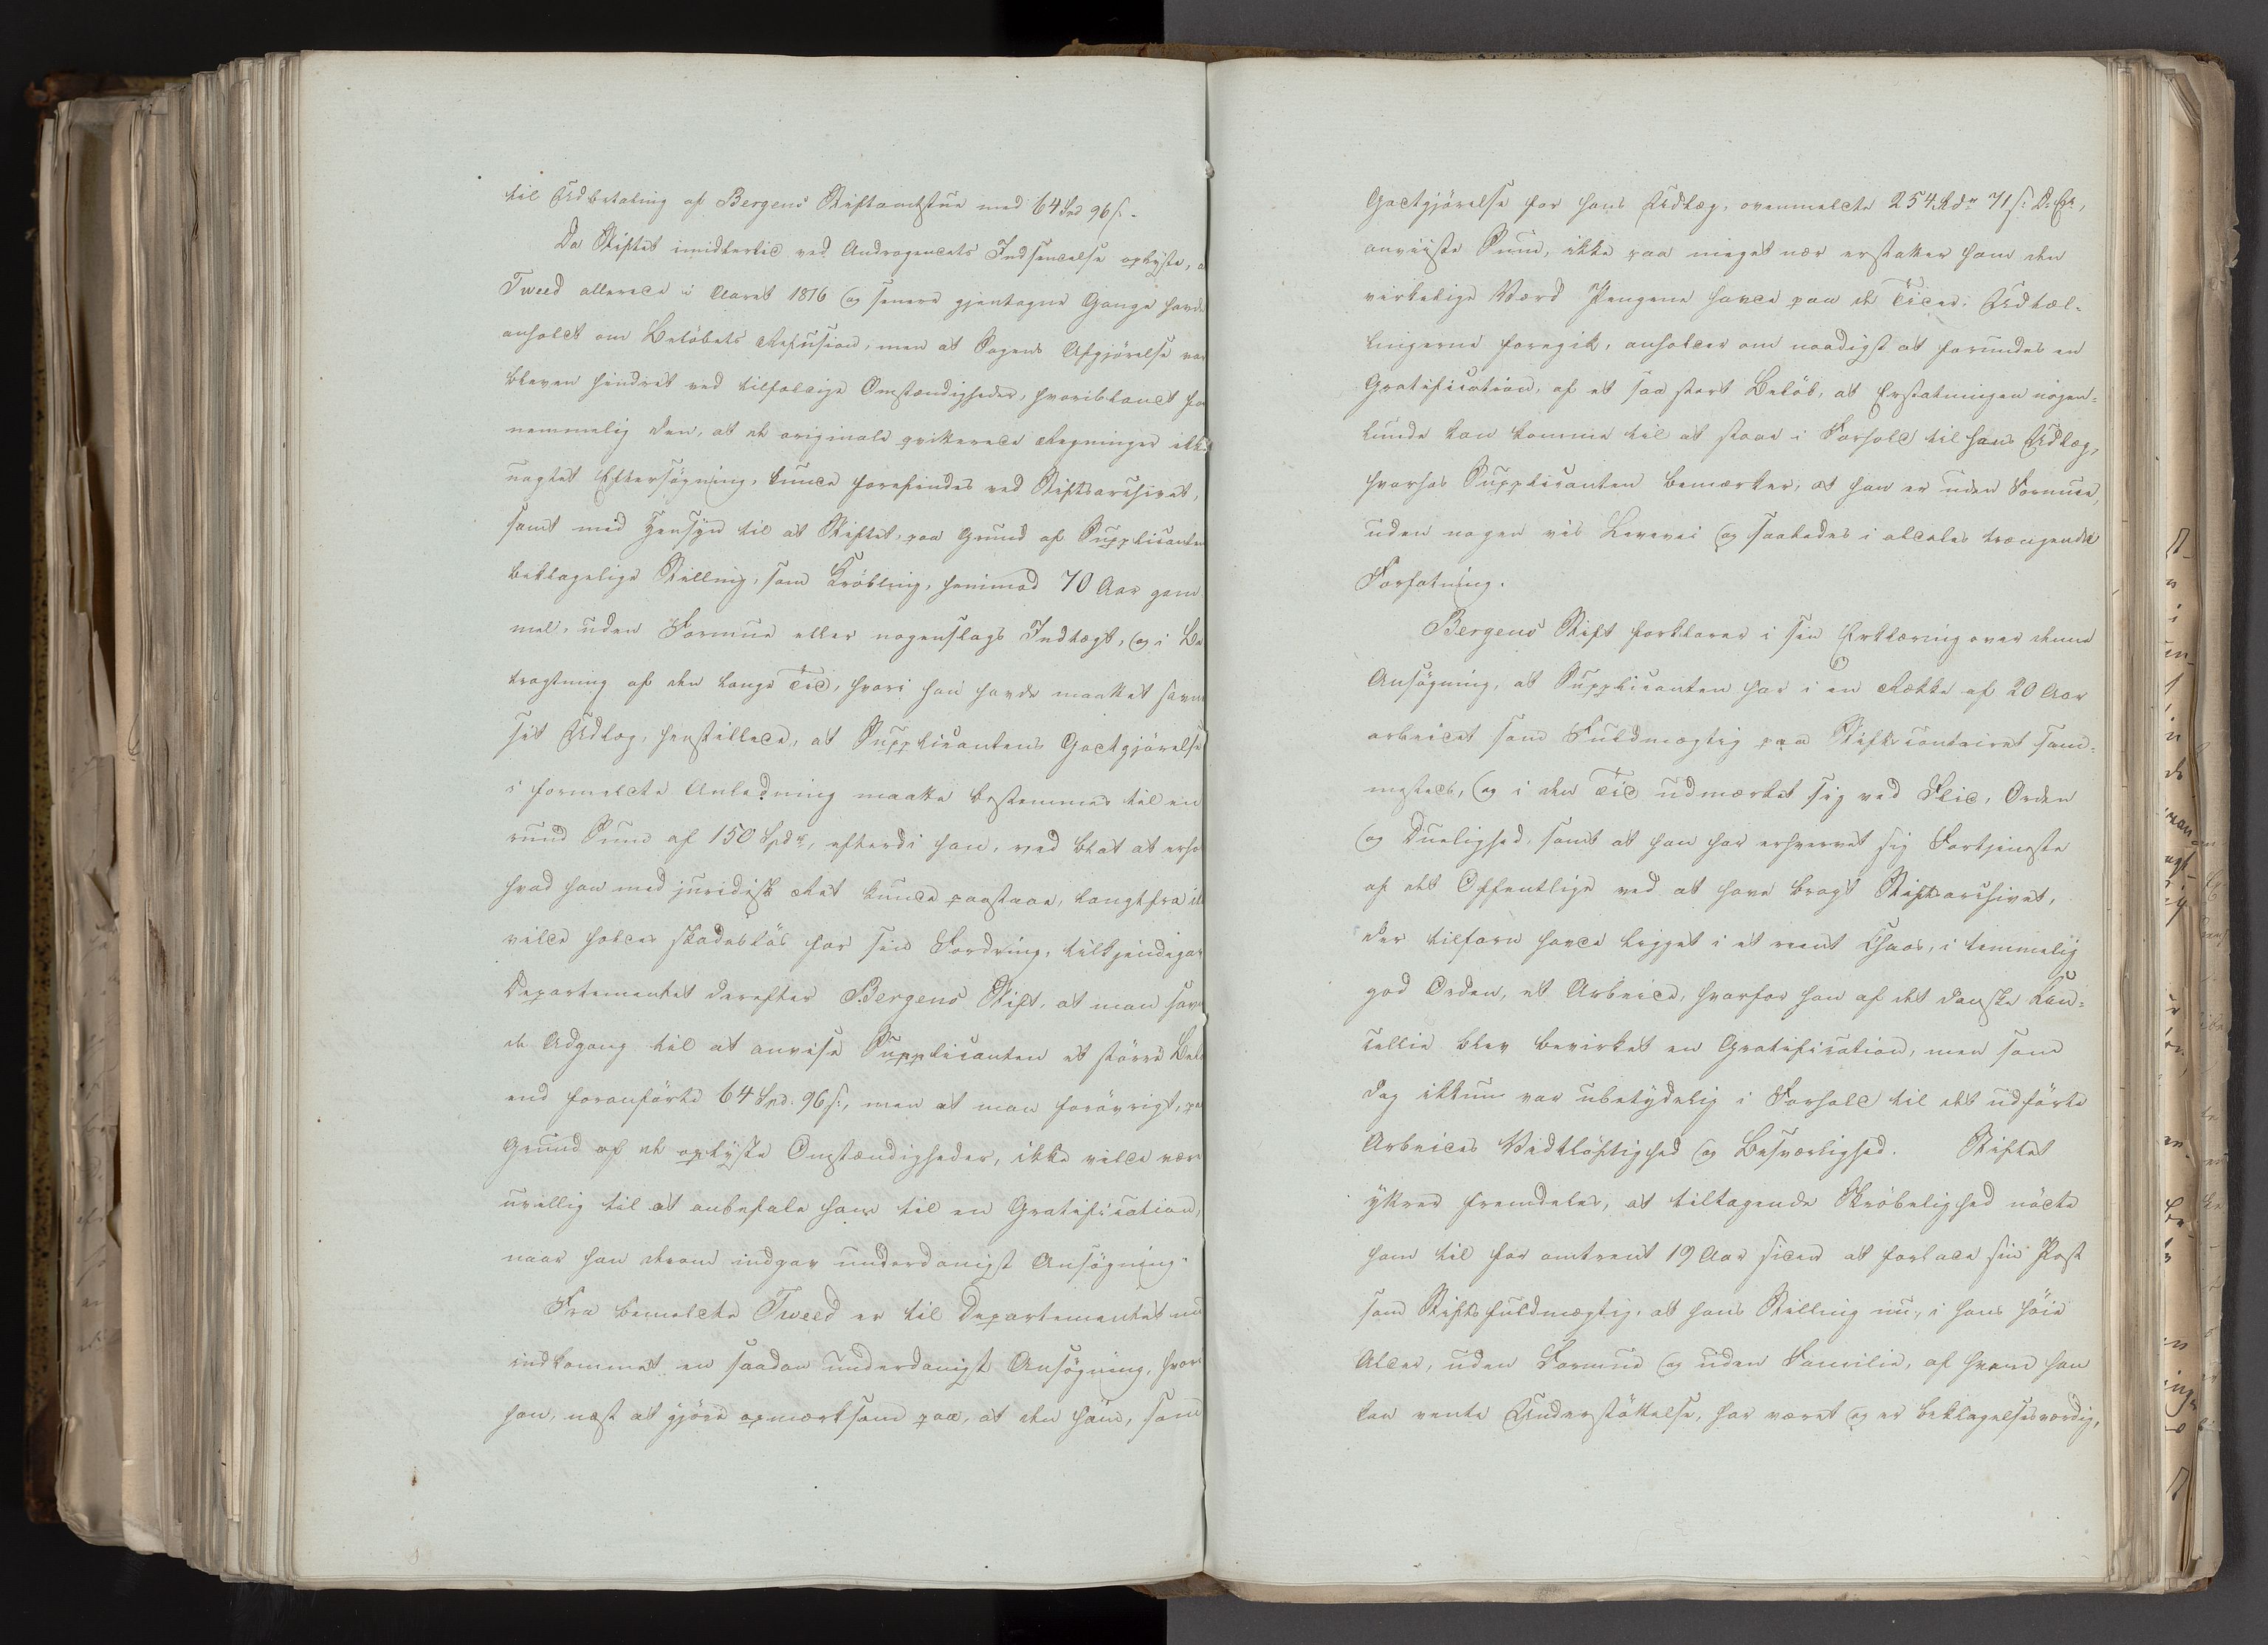 til Udbetaling af Bergens Stiftamtstue med 64 Spd 96 s.
Da Stiftet imidlertid ved Andragendets Indsendelse oplyste, a
Tweed allerede i Aaret 1816 og senere gjentagne Gange havde
anholdt om Belöbets Refusion, men at Sagens Afgjörelse var
bleven hindret ved tilfældige Omstændigheder, hvoriblandt for
nemmelig den, at de originale qvitterede Regninger ikke
uagtet Eftersögning, kunde forefindes ved Stiftsarchivet,
samt med Hensyn til at Stiftet, paa Grund af Supplicanten
beklagelige Stilling, som Kröbling, henimod 70 Aar gam
mel, uden Formue eller nogenslags Indtægt, og i Be
tragtning af den lange Tid, hvori han havde maattet savne
sit Udlæg, henstillede, at Supplicantens Godtgjörelse
i formeldte Anledning maatte bestemmes til en
rund Sum af 150 Spdr, efterdi han, ved blot at erho
hvad han med juridisk Ret kunde paastaae, langtfra ik
vilde holdes skadeslös for sin Fordring, tilkjendegav
Departementet derefter Bergens Stift, at man savn
de Adgang til at anvise Supplicanten et större Belö
end foranförte 64 Spd. 96 s:, men at man forövrigt, pa
Grund af de oplyste Omstændigheder, ikke vilde være
uvillig til at anbefale ham til en Gratification,
naar han derom indgav underdanigst Ansögning.
Fra bemeldte Tweed er til Departementet nu
indkommet en saadan underdanigst Ansögning, hvori
han, næst at gjöre opmærksom paa, at den ham, som
Godtgjörelse for hans Udlæg, ovenmeldte 254 Rdr 71 s: D. Ct,
anviiste Sum, ikke paa meget nær erstatter ham den
virkelige Værd Pengene havde paa de Tider, Udtæl-
lingerne foregik, anholder om naadigst at forundes en
Gratification, af et saa stort Belöb, at Erstatningen nogen-
lunde kan komme til at staae i Forhold til hans Udlæg,
hvorhos Supplicanten bemærker, at han er uden Formue,
uden nogen vis Levevei og saaledes i aldeles trængende
Forfatning.
Bergens Stift forklarer i sin Erklæring over denne
Ansögning, at Supplicanten har i en Række af 20 Aar
arbeidet som Fuldmægtig paa Stiftscontoiret sam-
mesteds, og i den Tid udmærket sig ved Flid, Orden
og Duelighed, samt at han har erhvervet sig Fortjeneste
af det Offentlige ved at have bragt Stiftsarchivet,
der tilforn havde ligget i et reent Chaos, i temmelig
god Orden, et Arbeide, hvorfor han af det danske Can-
cellie blev bevirket en Gratification, men som
dog ikkun var ubetydelig i Forhold til det udförte
Arbeides Vidtlöftighed og Besværlighed. Stiftet
yttrer fremdeles, at tiltagende Skröbelighed nödte
ham til for omtrent 19 Aar siden at forlade sin Post
som Stiftsfuldmægtig, at hans Stilling nu, i hans höie
Alder, uden Formue og uden Familie, af hvem han
kan vente Understöttelse, har været og er beklagelsesværdig,